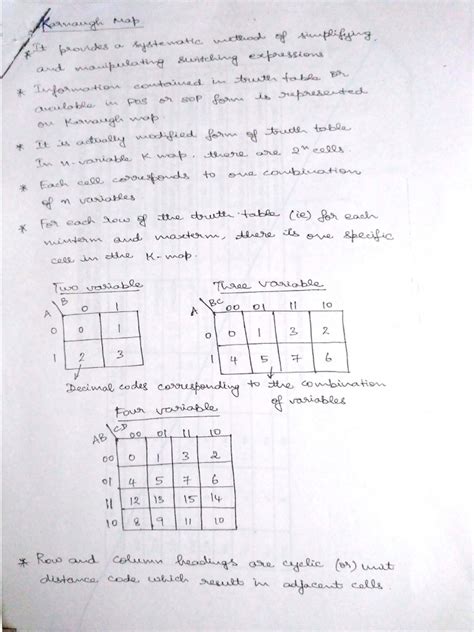 Karnaugh Map
* It provides a systematic method of simplifying
and manipulating switching expressions
* Information contained in truth table or
available in POS or SOP form is represented
on Karnaugh map.
* It is actually modified form of truth table
In n-variable K map. there are 2ⁿ cells.
* Each cell corresponds to one combination
of n variables
* For each row of the truth table (ie) for each
minterm and maxterm, there is one specific
cell in the K-map.
Two variable
A B 0 1
0 0 1
1 2 3
Three variable
A BC 00 01 11 10
0 0 1 3 2
1 4 5 7 6
Decimal codes corresponding to the combination
of variables
Four variable
AB CD 00 01 11 10
00 0 1 3 2
01 4 5 7 6
11 12 13 15 14
10 8 9 11 10
* Row and column headings are cyclic (or) unit
distance code which result in adjacent cells.